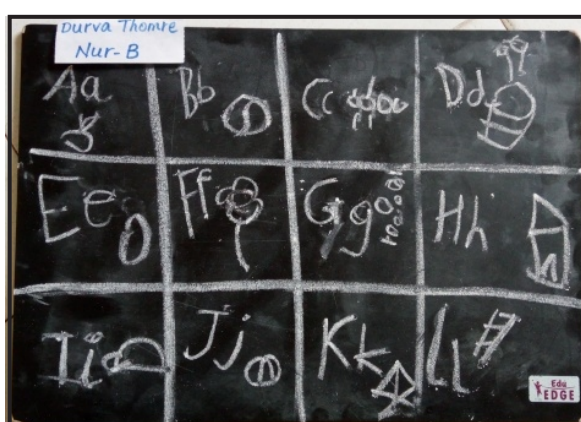 Durva Thomre
Nur-B
Aa Bb Cc Dd
Ee Ff Gg Hh
Ii Jj Kk Ll
Edu
EDGE